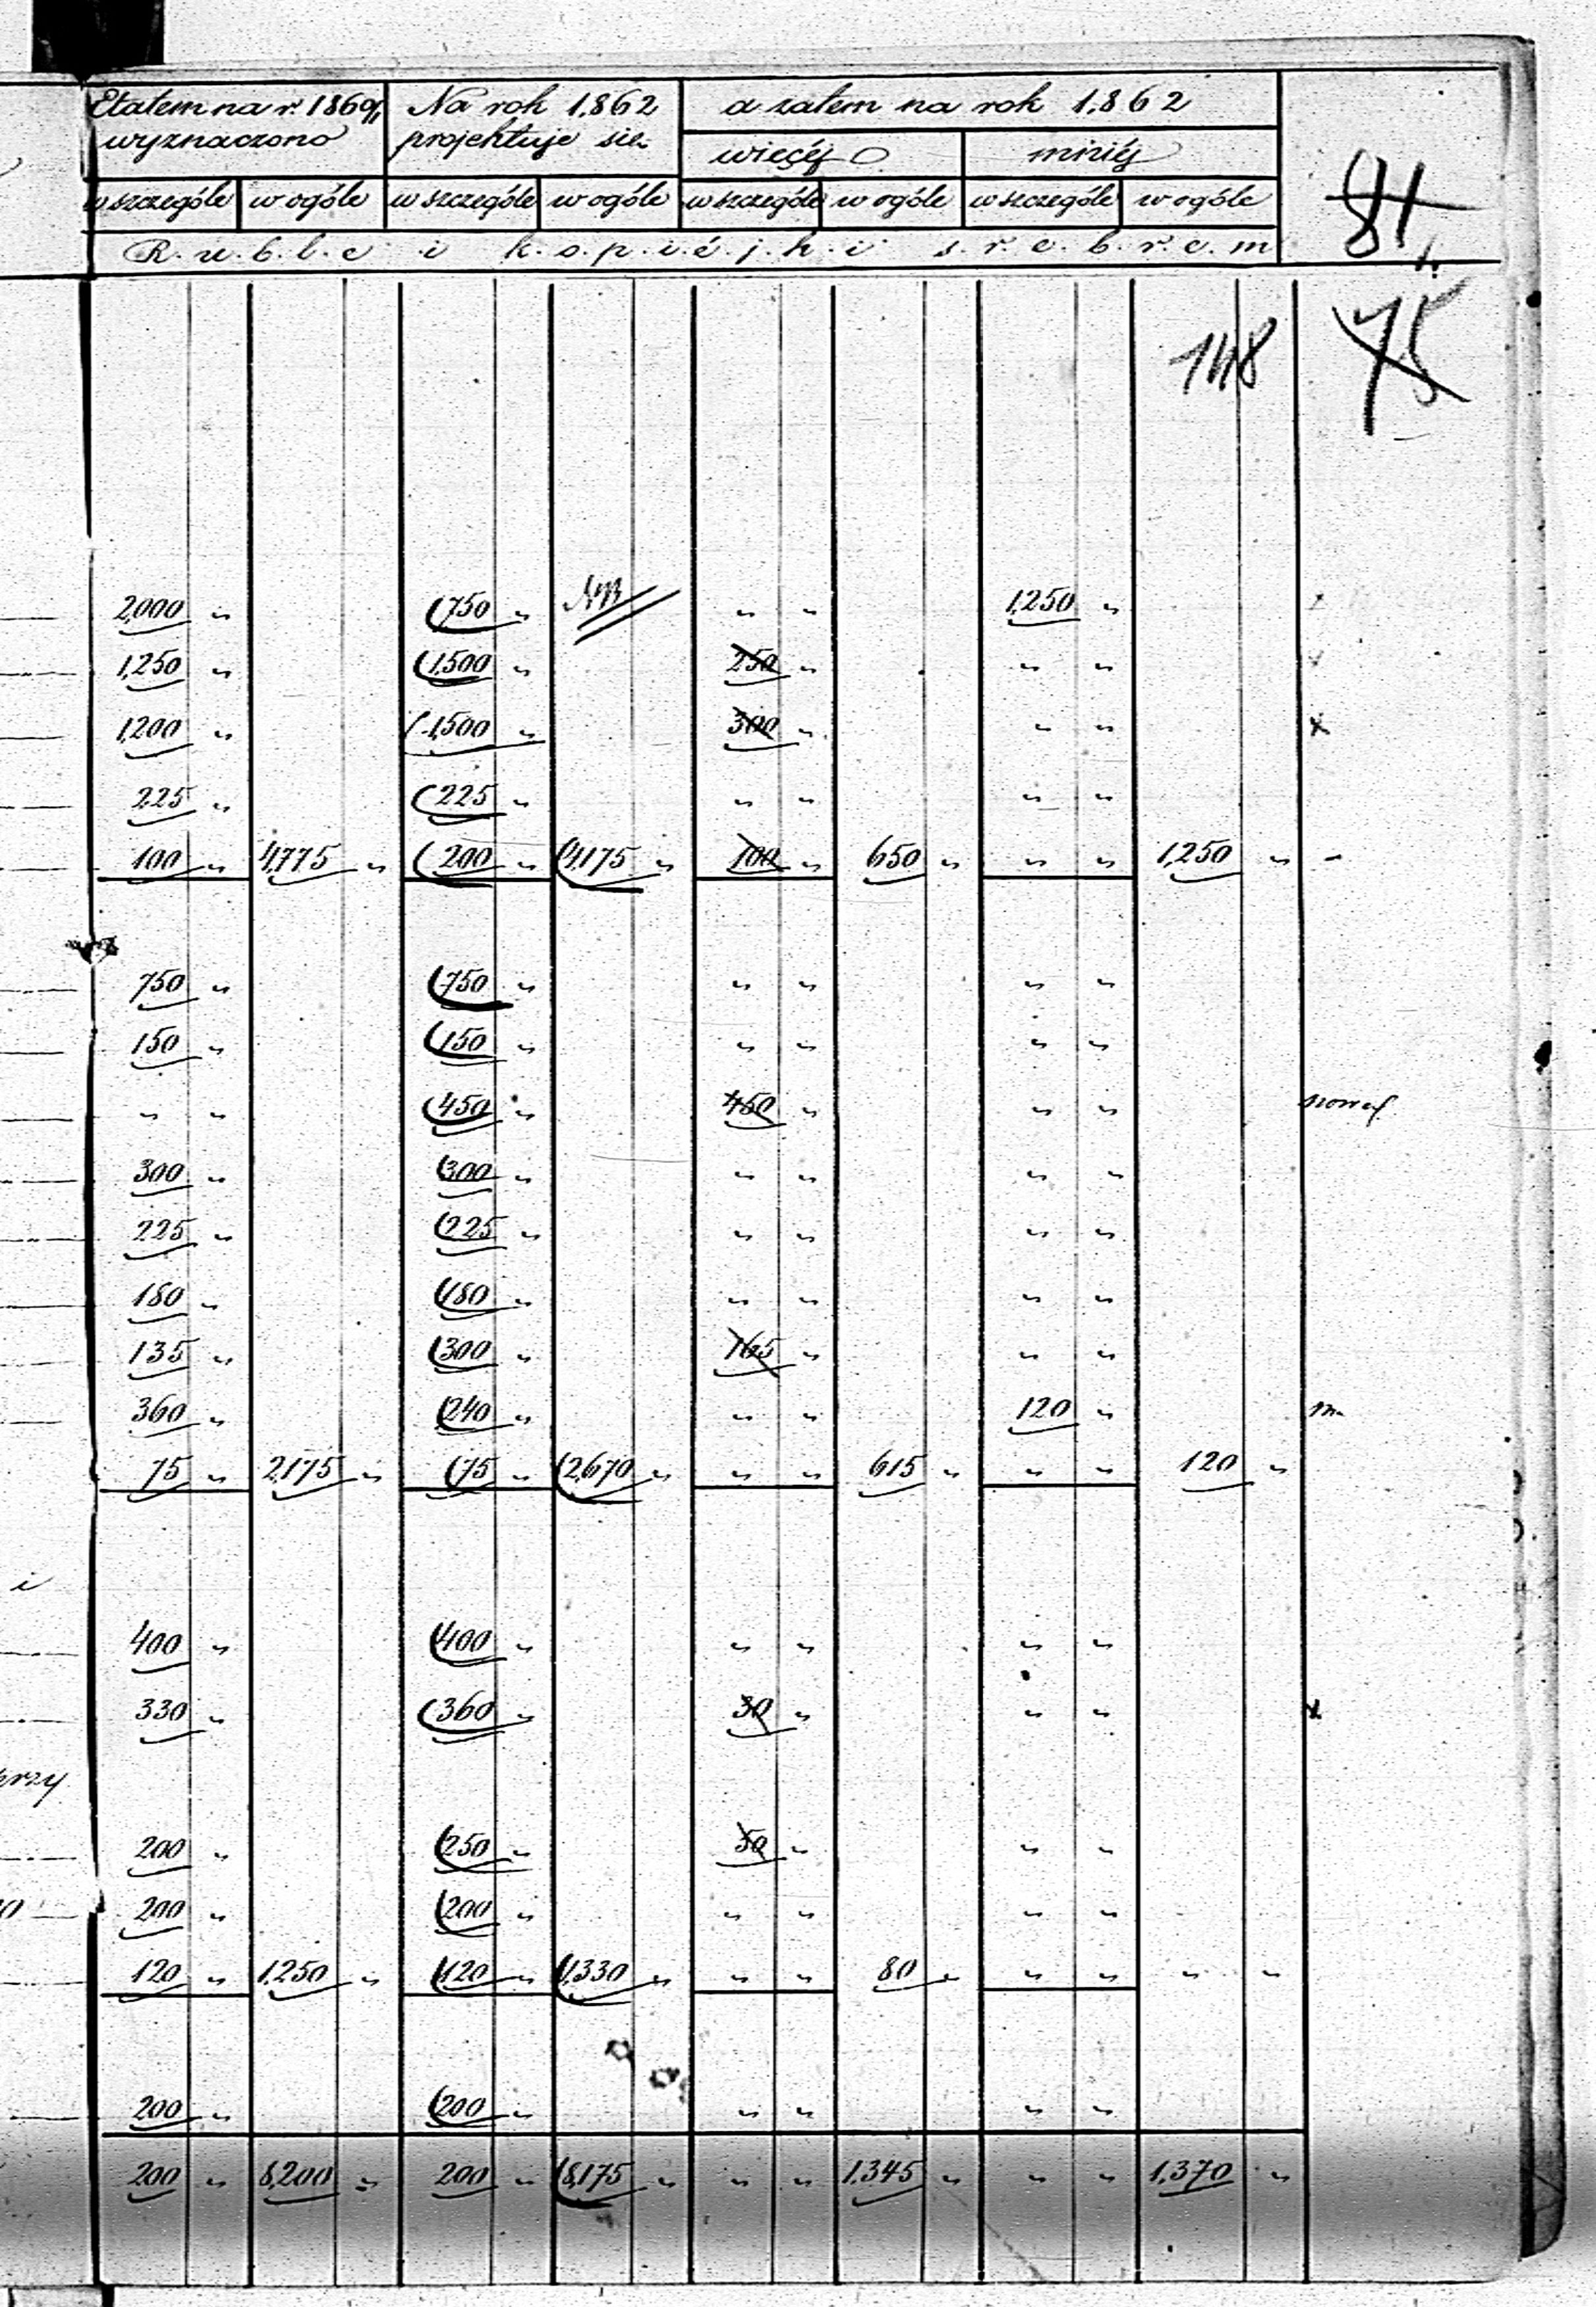 Etatem na r. 1860/1 Na rok 1862 a zatem na rok 1862
wyznaczono projektuje się więcéj mniéj
w szczególe w ogóle w szczególe w ogóle w szczególe w ogóle w szczególe w ogóle
81
Ruble i kopiéjki srebrem
75
148
2,000 " 750 " " " 1,250 "
1,250 " 1,500 " 250 " " "
1,200 " 1,500 " 300 " " " x
225 " 225 " " " " "
100 " 4,775 " 200 " 4,175 " 100 " 650 " " " 1,250 " -
750 " 750 " " " " "
150 " 150 " " " " "
" " 450 " 450 " " "
300 " 300 " " " " "
225 " 225 " " " " "
180 " 180 " " " " "
135 " 300 " 165 " " "
360 " 240 " " " 120 "
75 " 2,175 " 75 " 2,670 " " " 615 " " " 120 "
i
400 " 400 " " " " "
330 " 360 " 30 " " " x
przy
200 " 250 " 50 " " "
200 " 200 " " " " "
120 " 1,250 " 120 " 1,330 " " " 80 " " " " "
200 " 200 " " " " "
200 " 8,200 " 200 " 8,175 " " " 1,345 " " " 1,370 "